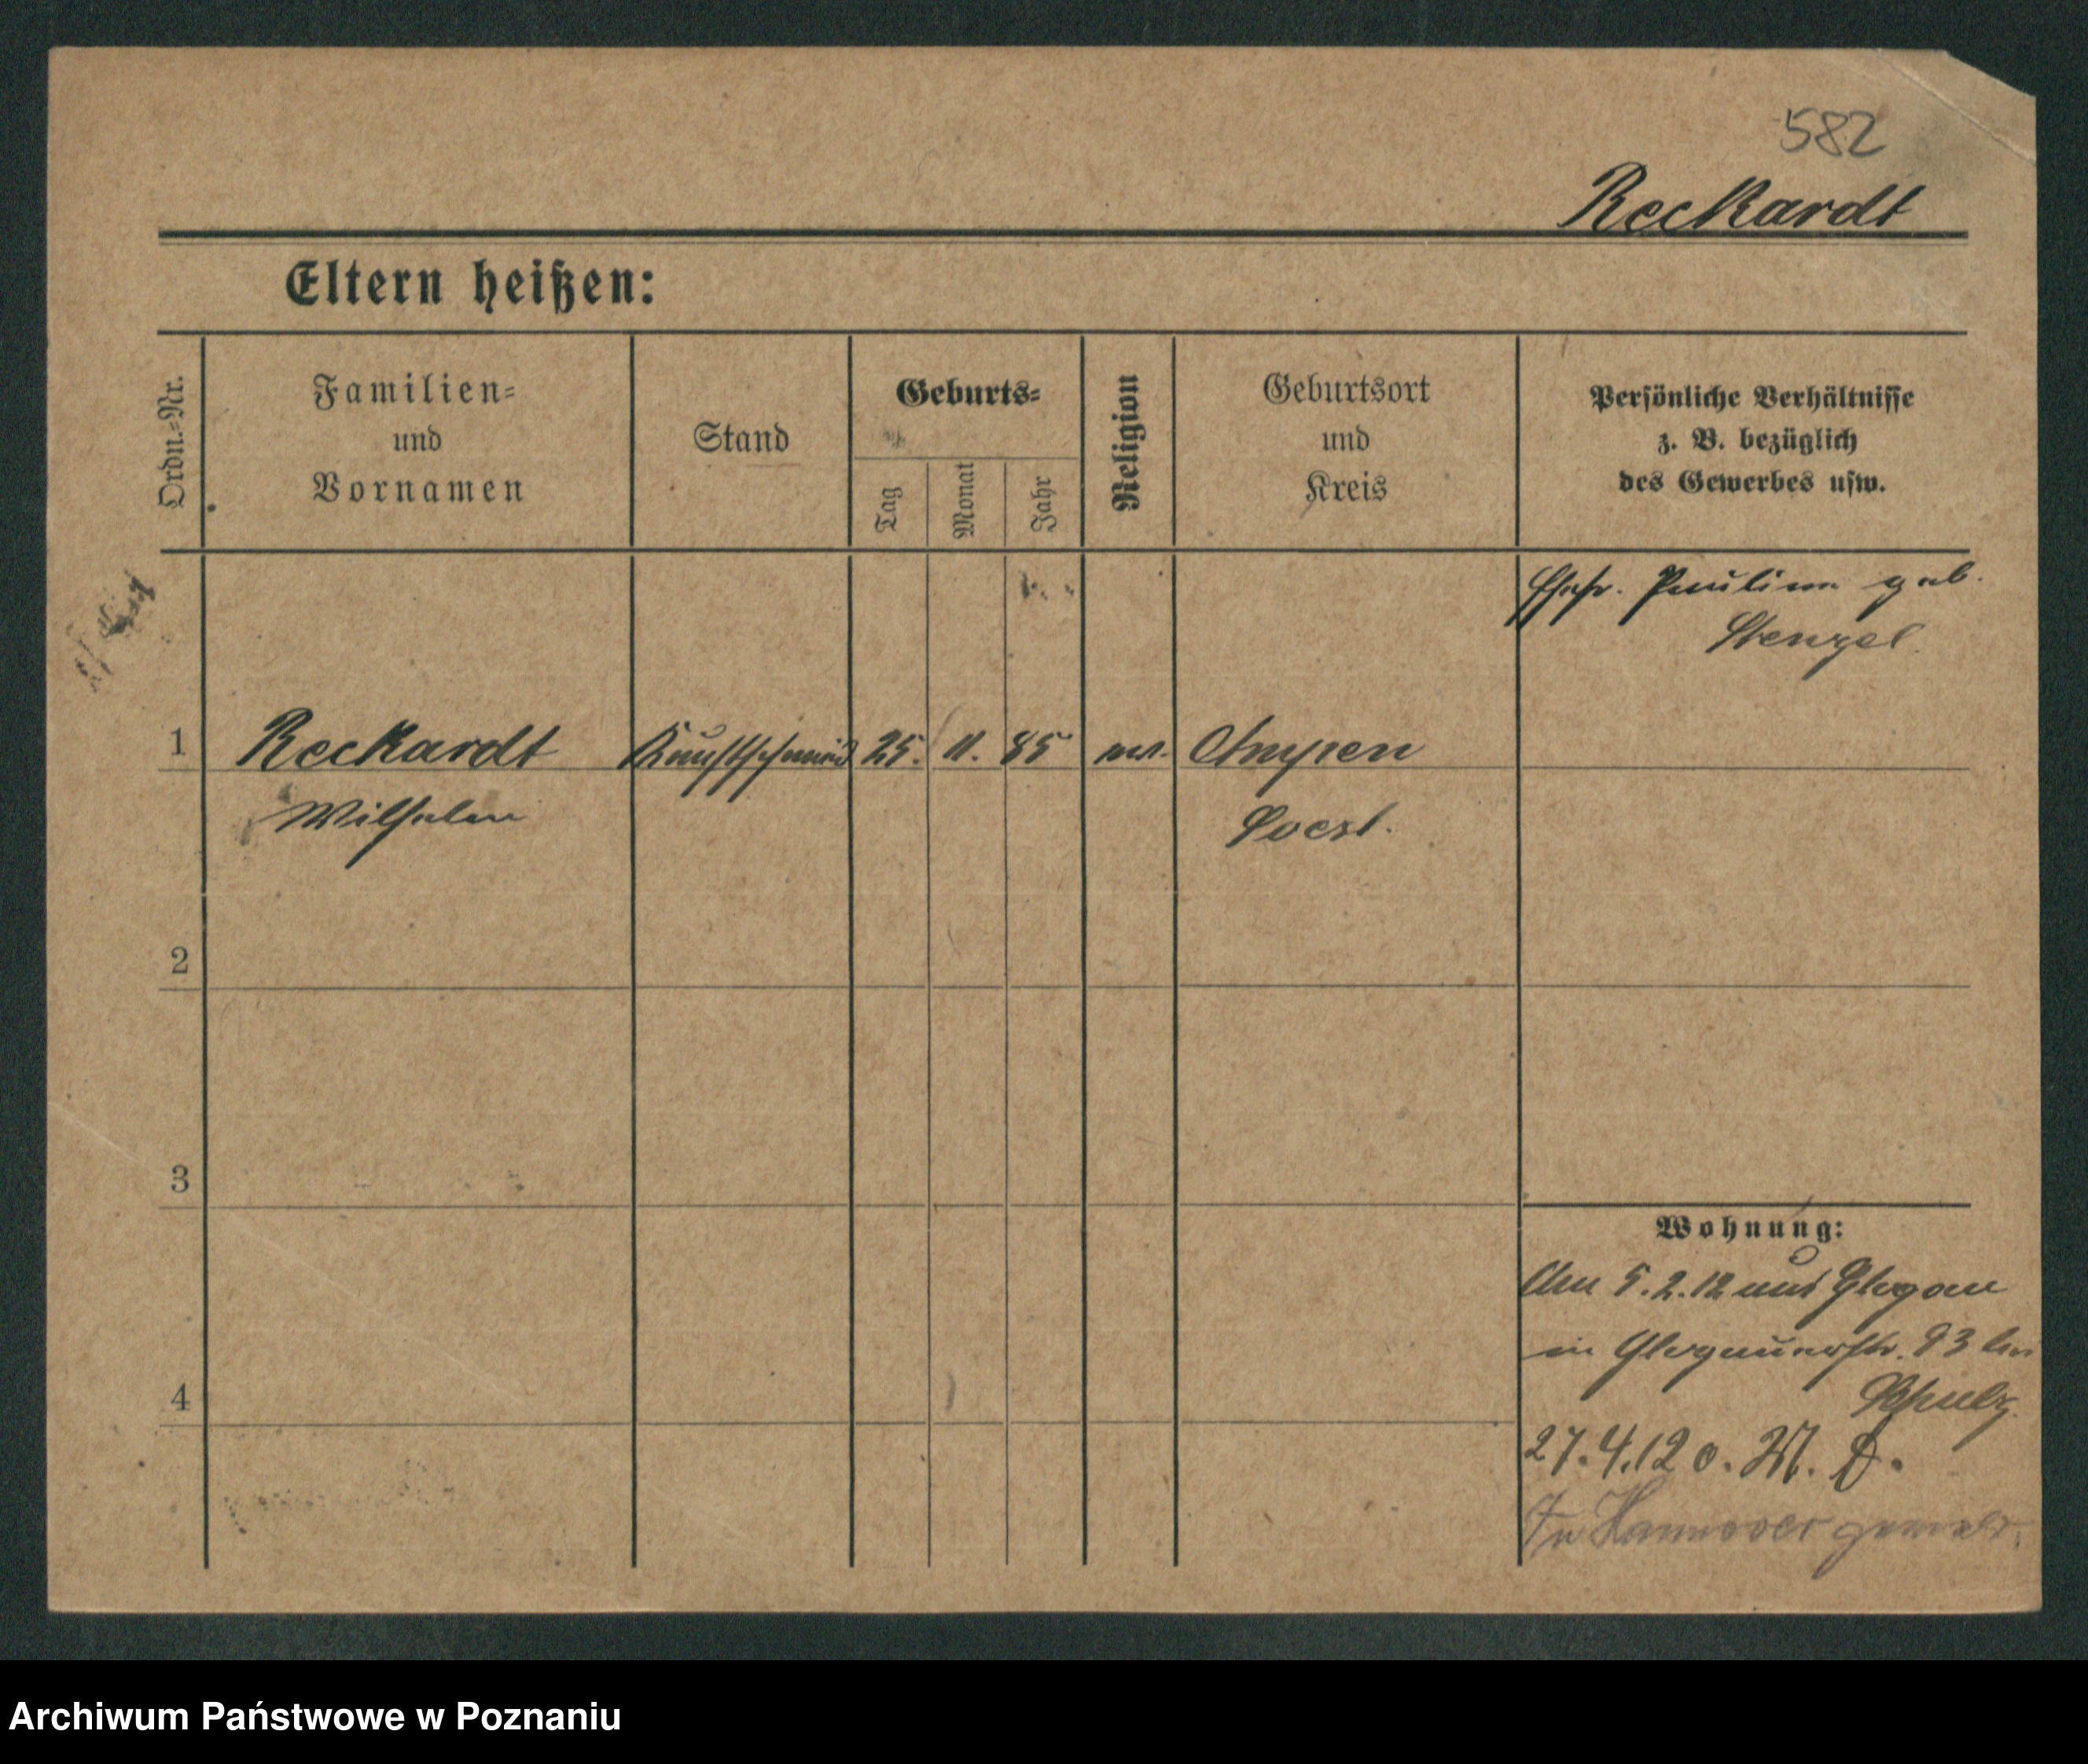 582
Reckardt
Eltern heißen:
Ordn.-Nr.
Familien-
und
Vornamen
Stand
Geburts-
Tag
Monat
Jahr
Religion
Geburtsort
und
Kreis
Persönliche Verhältnisse
z. B. bezüglich
des Gewerbes usw.
Ehefr. Pauline geb.
Stenzel.
1
Reckardt
Kunstschmied
25.
11.
85
ev.
Ampen
Wilhelm
Soest.
2
3
4
Wohnung:
Am 5.2.12 aus Glogau
in Glogauerstr. 93 bei
Schulz.
27.4.12 o. M. D.
In Hannover gemeld.
Archiwum Państwowe w Poznaniu